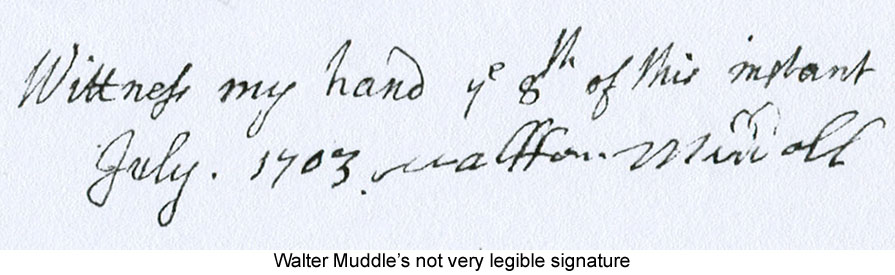 Wittness my hand yᵉ 8ᵗʰ of this instant
July. 1703
Walter Muddle's not very legible signature